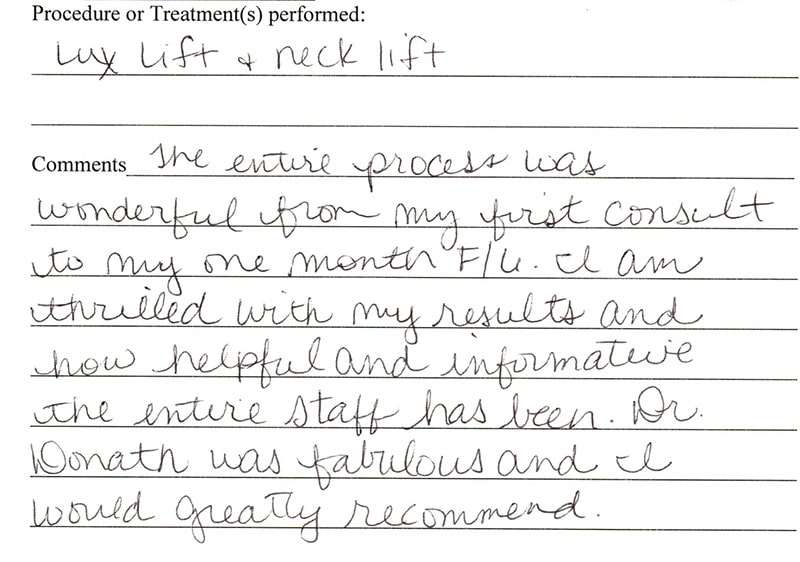 Procedure or Treatment(s) performed:
Lux Lift & neck lift
Comments The entire process was
wonderful from my first consult
to my one month F/U. I am
thrilled with my results and
how helpful and informative
the entire staff has been. Dr.
Donath was fabulous and I
would greatly recommend.